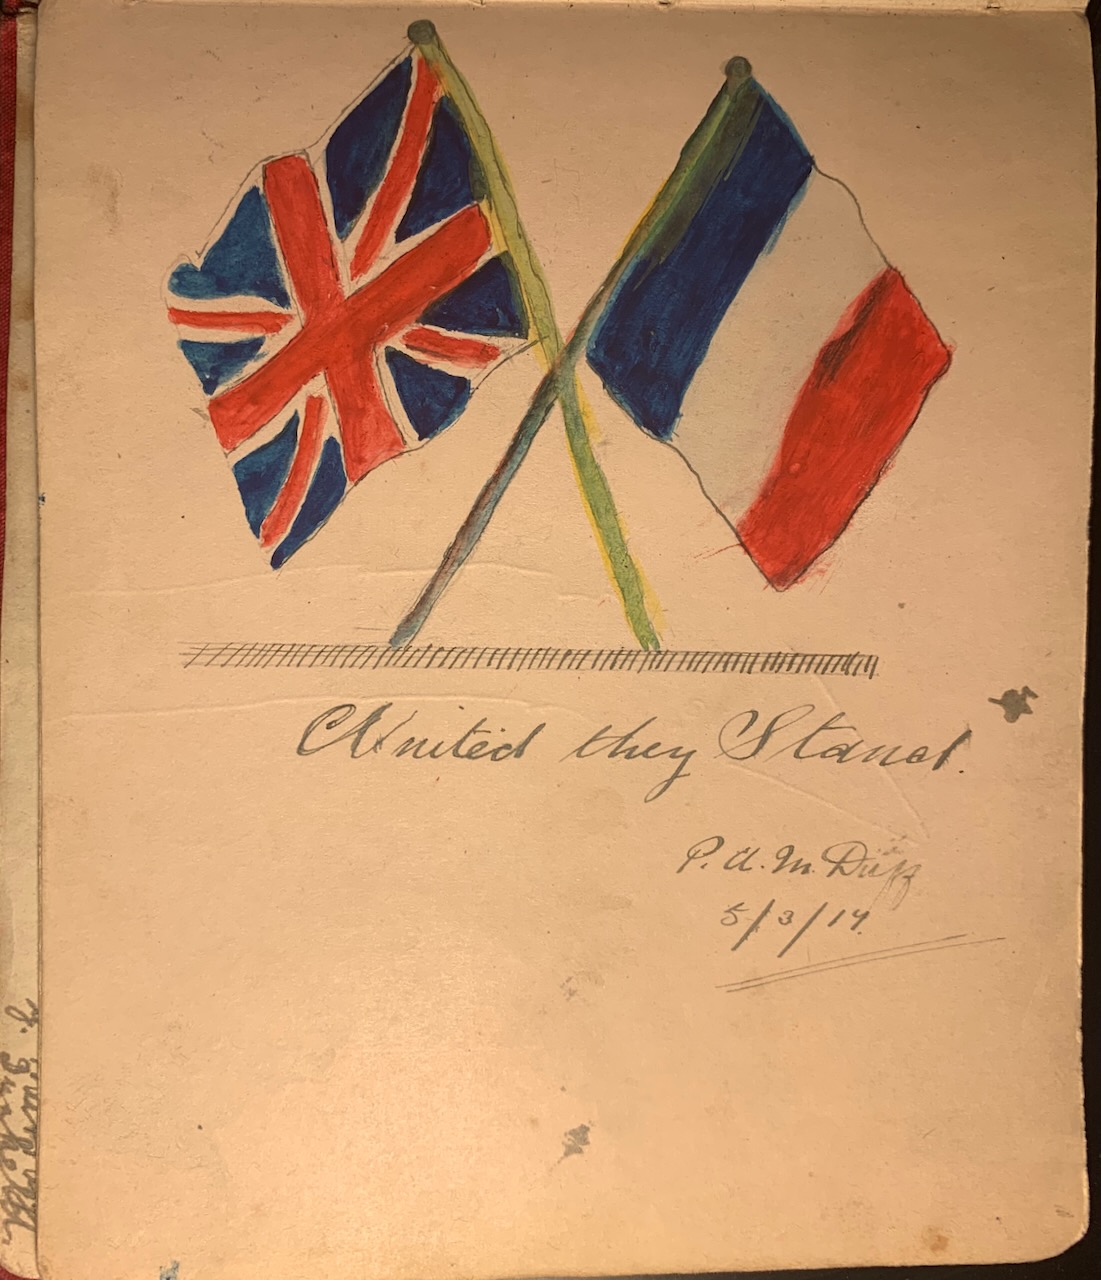 United they Stand.
P. A. M. Duff
5/3/17